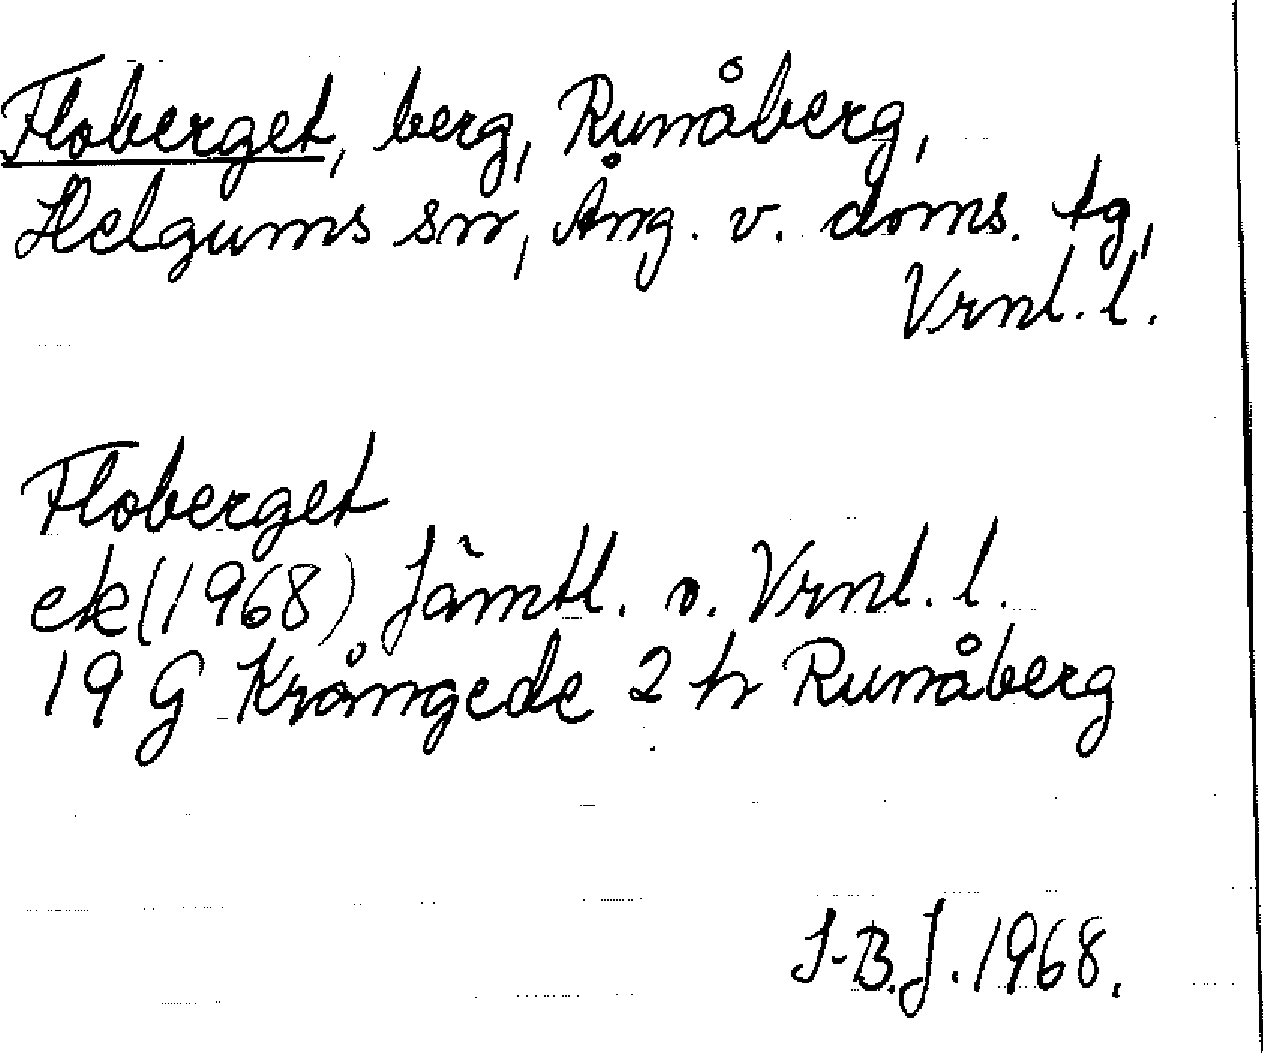 Floberget, berg, Runåberg,
Helgums sn, Ång. v. doms. tg,
Vrnl. l.
Floberget
ek (1968) Jämtl. o. Vrnl. l.
19 G Krångede 2 h Runåberg
I-B.J. 1968.